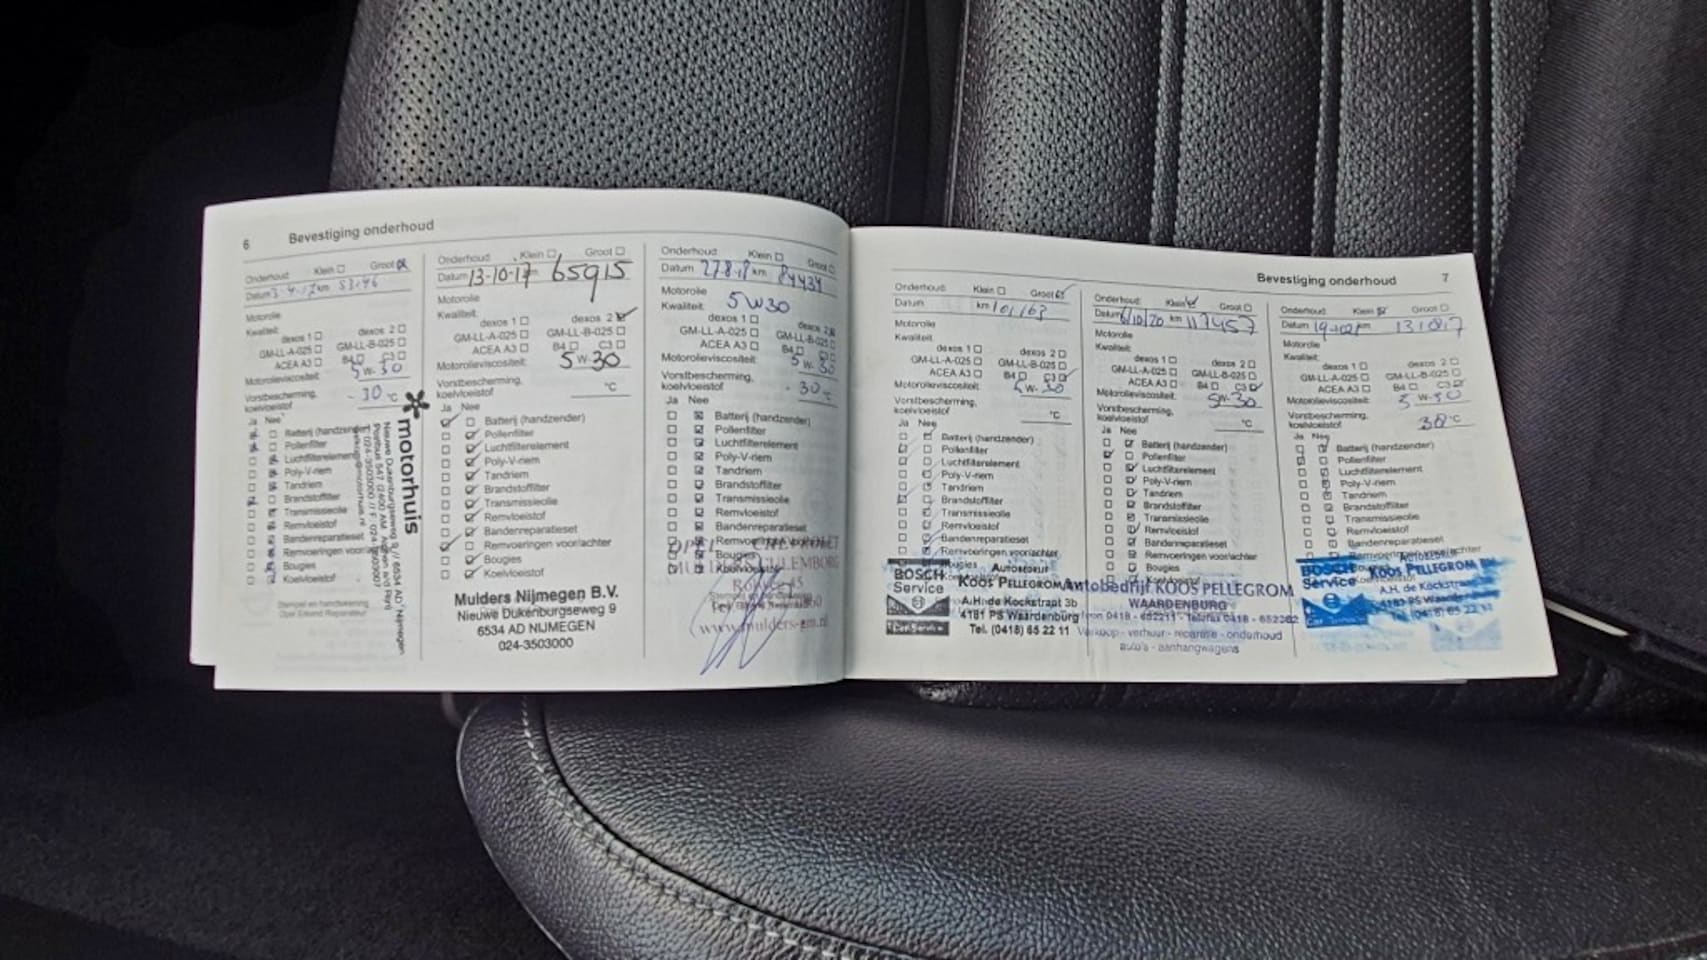 6 Bevestiging onderhoud
Onderhoud: Klein Groot
Datum km
Motorolie
Kwaliteit:
dexos 1 dexos 2
GM-LL-A-025 GM-LL-B-025
ACEA A3 B4 C3
Motorolieviscositeit: 5W-30
Vorstbescherming, koelvloeistof -30 °C
Ja Nee
Batterij (handzender)
Pollenfilter
Luchtfilterelement
Poly-V-riem
Tandriem
Brandstoffilter
Transmissieolie
Remvloeistof
Bandenreparatieset
Remvoeringen voor/achter
Bougies
Koelvloeistof
Stempel en handtekening
Opel Erkend Reparateur
motorhuis
Nieuwe Dukenburgseweg 9 // 6534 AD Nijmegen
Onderhoud: Klein Groot
Datum 13-10-17 km 65915
Motorolie
Kwaliteit:
dexos 1 dexos 2
GM-LL-A-025 GM-LL-B-025
ACEA A3 B4 C3
Motorolieviscositeit: 5W-30
Vorstbescherming, koelvloeistof °C
Ja Nee
Batterij (handzender)
Pollenfilter
Luchtfilterelement
Poly-V-riem
Tandriem
Brandstoffilter
Transmissieolie
Remvloeistof
Bandenreparatieset
Remvoeringen voor/achter
Bougies
Koelvloeistof
Mulders Nijmegen B.V.
Nieuwe Dukenburgseweg 9
6534 AD NIJMEGEN
024-3503000
Onderhoud: Klein Groot
Datum 27-8-18 km 84434
Motorolie
Kwaliteit: 5W30
dexos 1 dexos 2
GM-LL-A-025 GM-LL-B-025
ACEA A3 B4 C3
Motorolieviscositeit: 5W-30
Vorstbescherming, koelvloeistof -30 °C
Ja Nee
Batterij (handzender)
Pollenfilter
Luchtfilterelement
Poly-V-riem
Tandriem
Brandstoffilter
Transmissieolie
Remvloeistof
Bandenreparatieset
Remvoeringen voor/achter
Bougies
Koelvloeistof
OPEL CHEVROLET
www.mulders-gm.nl
Bevestiging onderhoud 7
Onderhoud: Klein Groot
Datum km 101163
Motorolie
Kwaliteit:
dexos 1 dexos 2
GM-LL-A-025 GM-LL-B-025
ACEA A3 B4 C3
Motorolieviscositeit: 5W-30
Vorstbescherming, koelvloeistof °C
Ja Nee
Batterij (handzender)
Pollenfilter
Luchtfilterelement
Poly-V-riem
Tandriem
Brandstoffilter
Transmissieolie
Remvloeistof
Bandenreparatieset
Remvoeringen voor/achter
Bougies
BOSCH
Service
Car Service
AUTOBEDRIJF
KOOS PELLEGROM
A.H. de Kockstraat 3b
4181 PS Waardenburg
Tel. (0418) 65 22 11
Onderhoud: Klein Groot
Datum 6/10/20 km 117457
Motorolie
Kwaliteit:
dexos 1 dexos 2
GM-LL-A-025 GM-LL-B-025
ACEA A3 B4 C3
Motorolieviscositeit: 5W-30
Vorstbescherming, koelvloeistof °C
Ja Nee
Batterij (handzender)
Pollenfilter
Luchtfilterelement
Poly-V-riem
Tandriem
Brandstoffilter
Transmissieolie
Remvloeistof
Bandenreparatieset
Remvoeringen voor/achter
Bougies
Autobedrijf KOOS PELLEGROM
WAARDENBURG
0418 - 652211 - Telefax 0418 - 652262
Verkoop - verhuur - reparatie - onderhoud
auto's - aanhangwagens
Onderhoud: Klein Groot
Datum km 131087
Motorolie
Kwaliteit:
dexos 1 dexos 2
GM-LL-A-025 GM-LL-B-025
ACEA A3 B4 C3
Motorolieviscositeit: 5W-30
Vorstbescherming, koelvloeistof °C
Ja Nee
Batterij (handzender)
Pollenfilter
Luchtfilterelement
Poly-V-riem
Tandriem
Brandstoffilter
Transmissieolie
Remvloeistof
Bandenreparatieset
Remvoeringen voor/achter
BOSCH
Service
AUTOBEDRIJF
KOOS PELLEGROM
A.H. de Kockstraat
4181 PS Waardenburg
(0418) 65 22 11